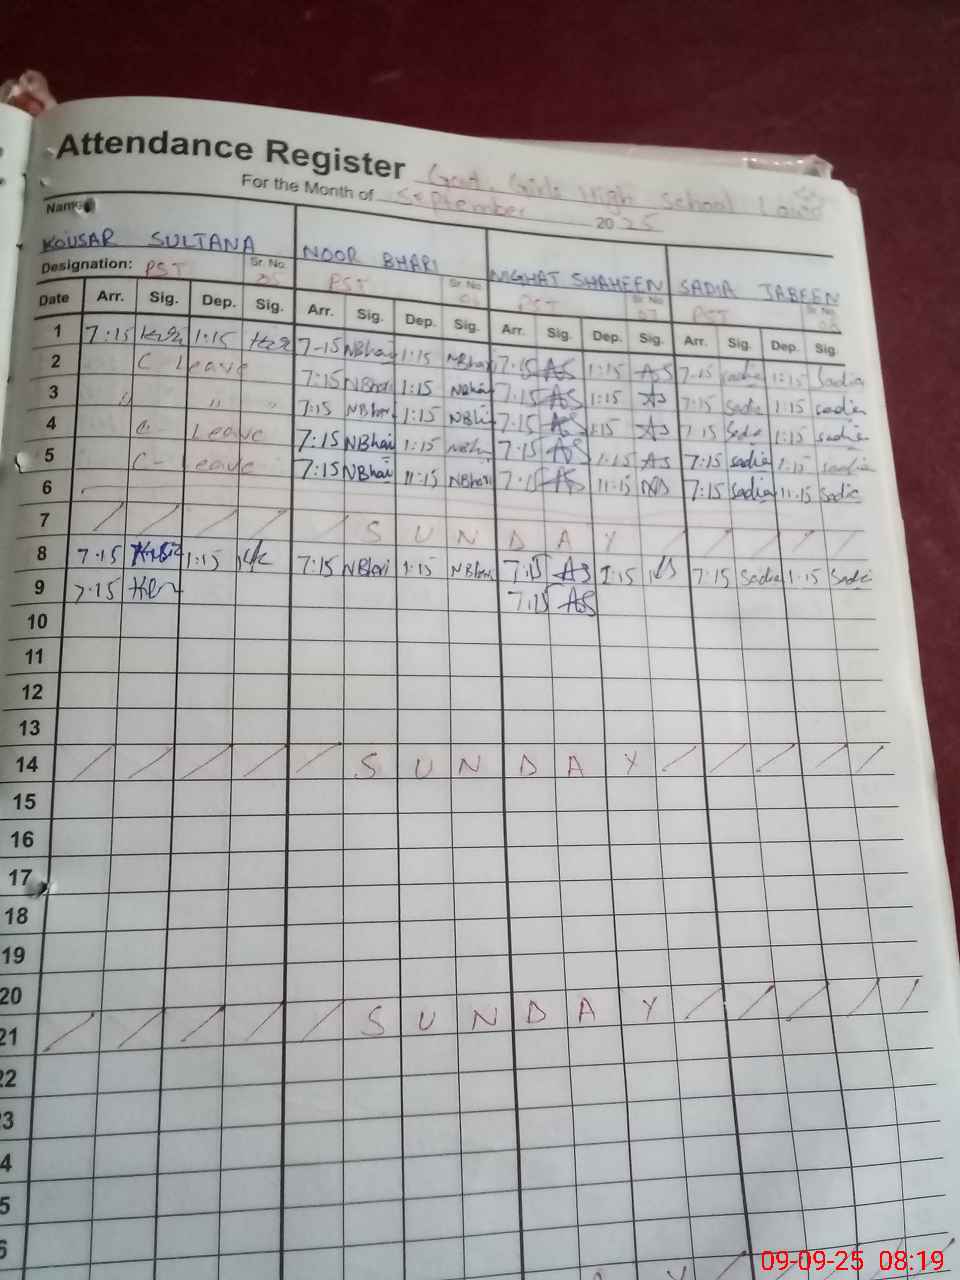 Attendance Register Govt. Girls High School
For the Month of September 2025
Name
KOUSAR SULTANA NOOR BHARI NIGHAT SHAHEEN SADIA JABEEN
Designation: PST Sr. No. 05 PST Sr. No. PST Sr. No. 07 PST Sr. No.
Date Arr. Sig. Dep. Sig. Arr. Sig. Dep. Sig. Arr. Sig. Dep. Sig. Arr. Sig. Dep. Sig.
1 7:15 1:15 7-15 NBhai 1:15 NBhai 7:15 AS 1:15 AS 7:15 sadia 1:15 Sadia
2 C Leave 7:15 NBhai 1:15 NBhai 7:15 AS 1:15 AS 7:15 Sadia 1:15 sadia
3 " " " 7:15 NBhai 1:15 NBhi 7:15 AS 1:15 AS 7:15 Sadia 1:15 sadia
4 C- Leave 7:15 NBhai 1:15 NBhai 7:15 AS 1:15 AS 7:15 sadia 1:15 sadia
5 C- Leave 7:15 NBhai 11:15 NBhari 7:15 AS 11:15 AS 7:15 Sadia 11:15 Sadia
6
7 S U N D A Y
8 7:15 1:15 7:15 NBhari 1:15 NBhari 7:15 AS 1:15 AS 7:15 Sadia 1:15 Sadia
9 7:15 7:15 AS
10
11
12
13
14 S U N D A Y
15
16
17
18
19
20
21 S U N D A Y
22
23
4
5
6
A Y
09-09-25 08:19